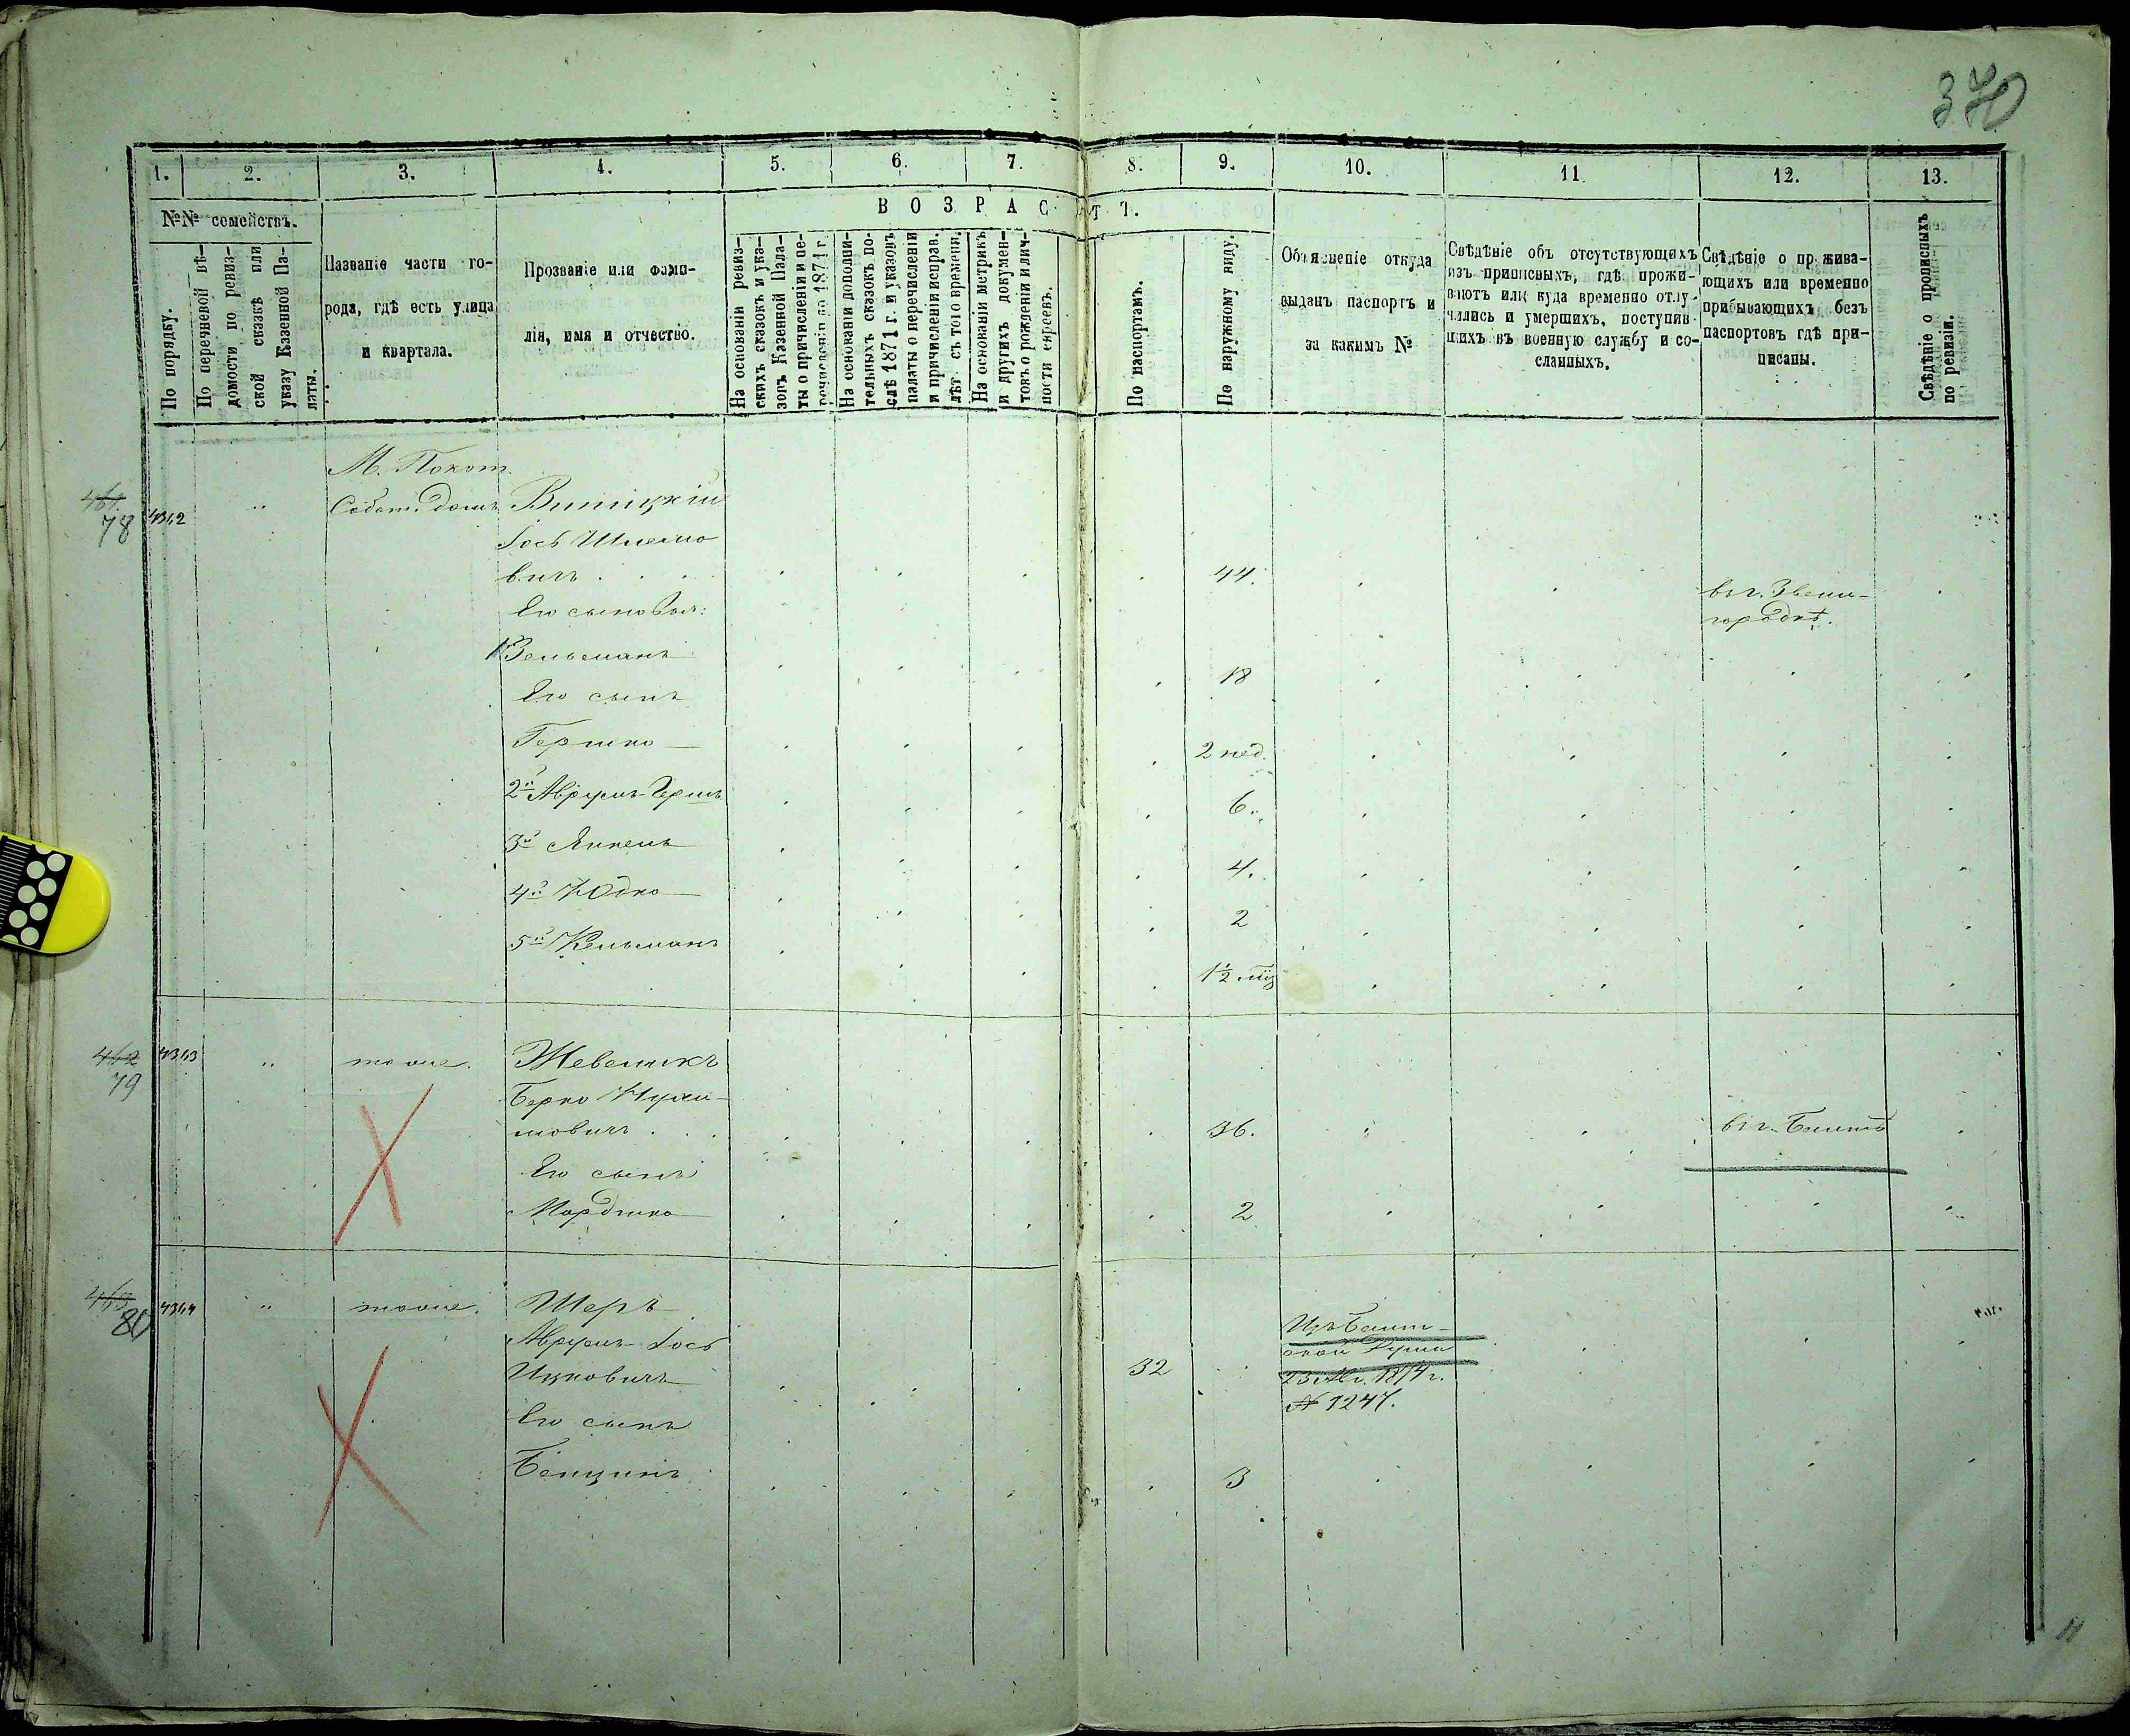 370
1. 2. 3. 4. 5. 6. 7. 8. 9. 10. 11. 12. 13.
№№ семействъ.
ВОЗРАСТЪ.
По порядку.
По перечневой вѣ-
домости по ревиз-
ской сказкѣ или
указу Казенной Па-
латы.
Названіе части го-
рода, гдѣ есть улица
и квартала.
Прозваніе или фами-
лія, имя и отчество.
На основаніи ревиз-
скихъ сказокъ и ука-
зовъ Казенной Пала-
ты о причисленіи и пе-
речисленіи до 1871 г.
На основаніи дополни-
тельныхъ сказокъ по-
слѣ 1871 г. и указовъ
палаты о перечисленіи
и причисленіи исправ.
лѣт. съ того времени.
На основаніи метрикъ
и другихъ докумен-
товъ о рожденіи и лич-
ности евреевъ.
По паспортамъ.
По наружному виду.
Объясненіе откуда
выданъ паспортъ и
за какимъ №
Свѣдѣніе объ отсутствующихъ
изъ приписныхъ, гдѣ прожи-
ваютъ или куда временно отлу-
чились и умершихъ, поступив-
шихъ въ военную службу и со-
сланныхъ.
Свѣдѣніе о прожива-
ющихъ или временно
прибывающихъ безъ
паспортовъ гдѣ при-
писаны.
Свѣдѣніе о прописныхъ
по ревизіи.
М. Покот.
461.
78 4342 " Собст. домъ Виницкій
Іось Шлемо
вичъ . . . 44. въ г. Звени-
городкѣ.
Его сыновья:
1й Зельманъ 18
Его сынъ
Гершко 2 нед.
2й Аврумъ-Гершъ 6.
3й Янкель 4.
4й Юдко 2
5й Кельманъ 1½ мѣс
462
79 4343 " тоже. Жевеликъ
Берко
мовичъ . . . 36. въ г. Балтѣ
Его сынъ
Мордко 2
463
80 4344 " тоже. Шеръ
Аврумъ-Іось
Ицковичъ 32
Изъ Балт-
ской Думы
23 1874 г.
№ 1247.
Его сынъ
Бенционъ 3